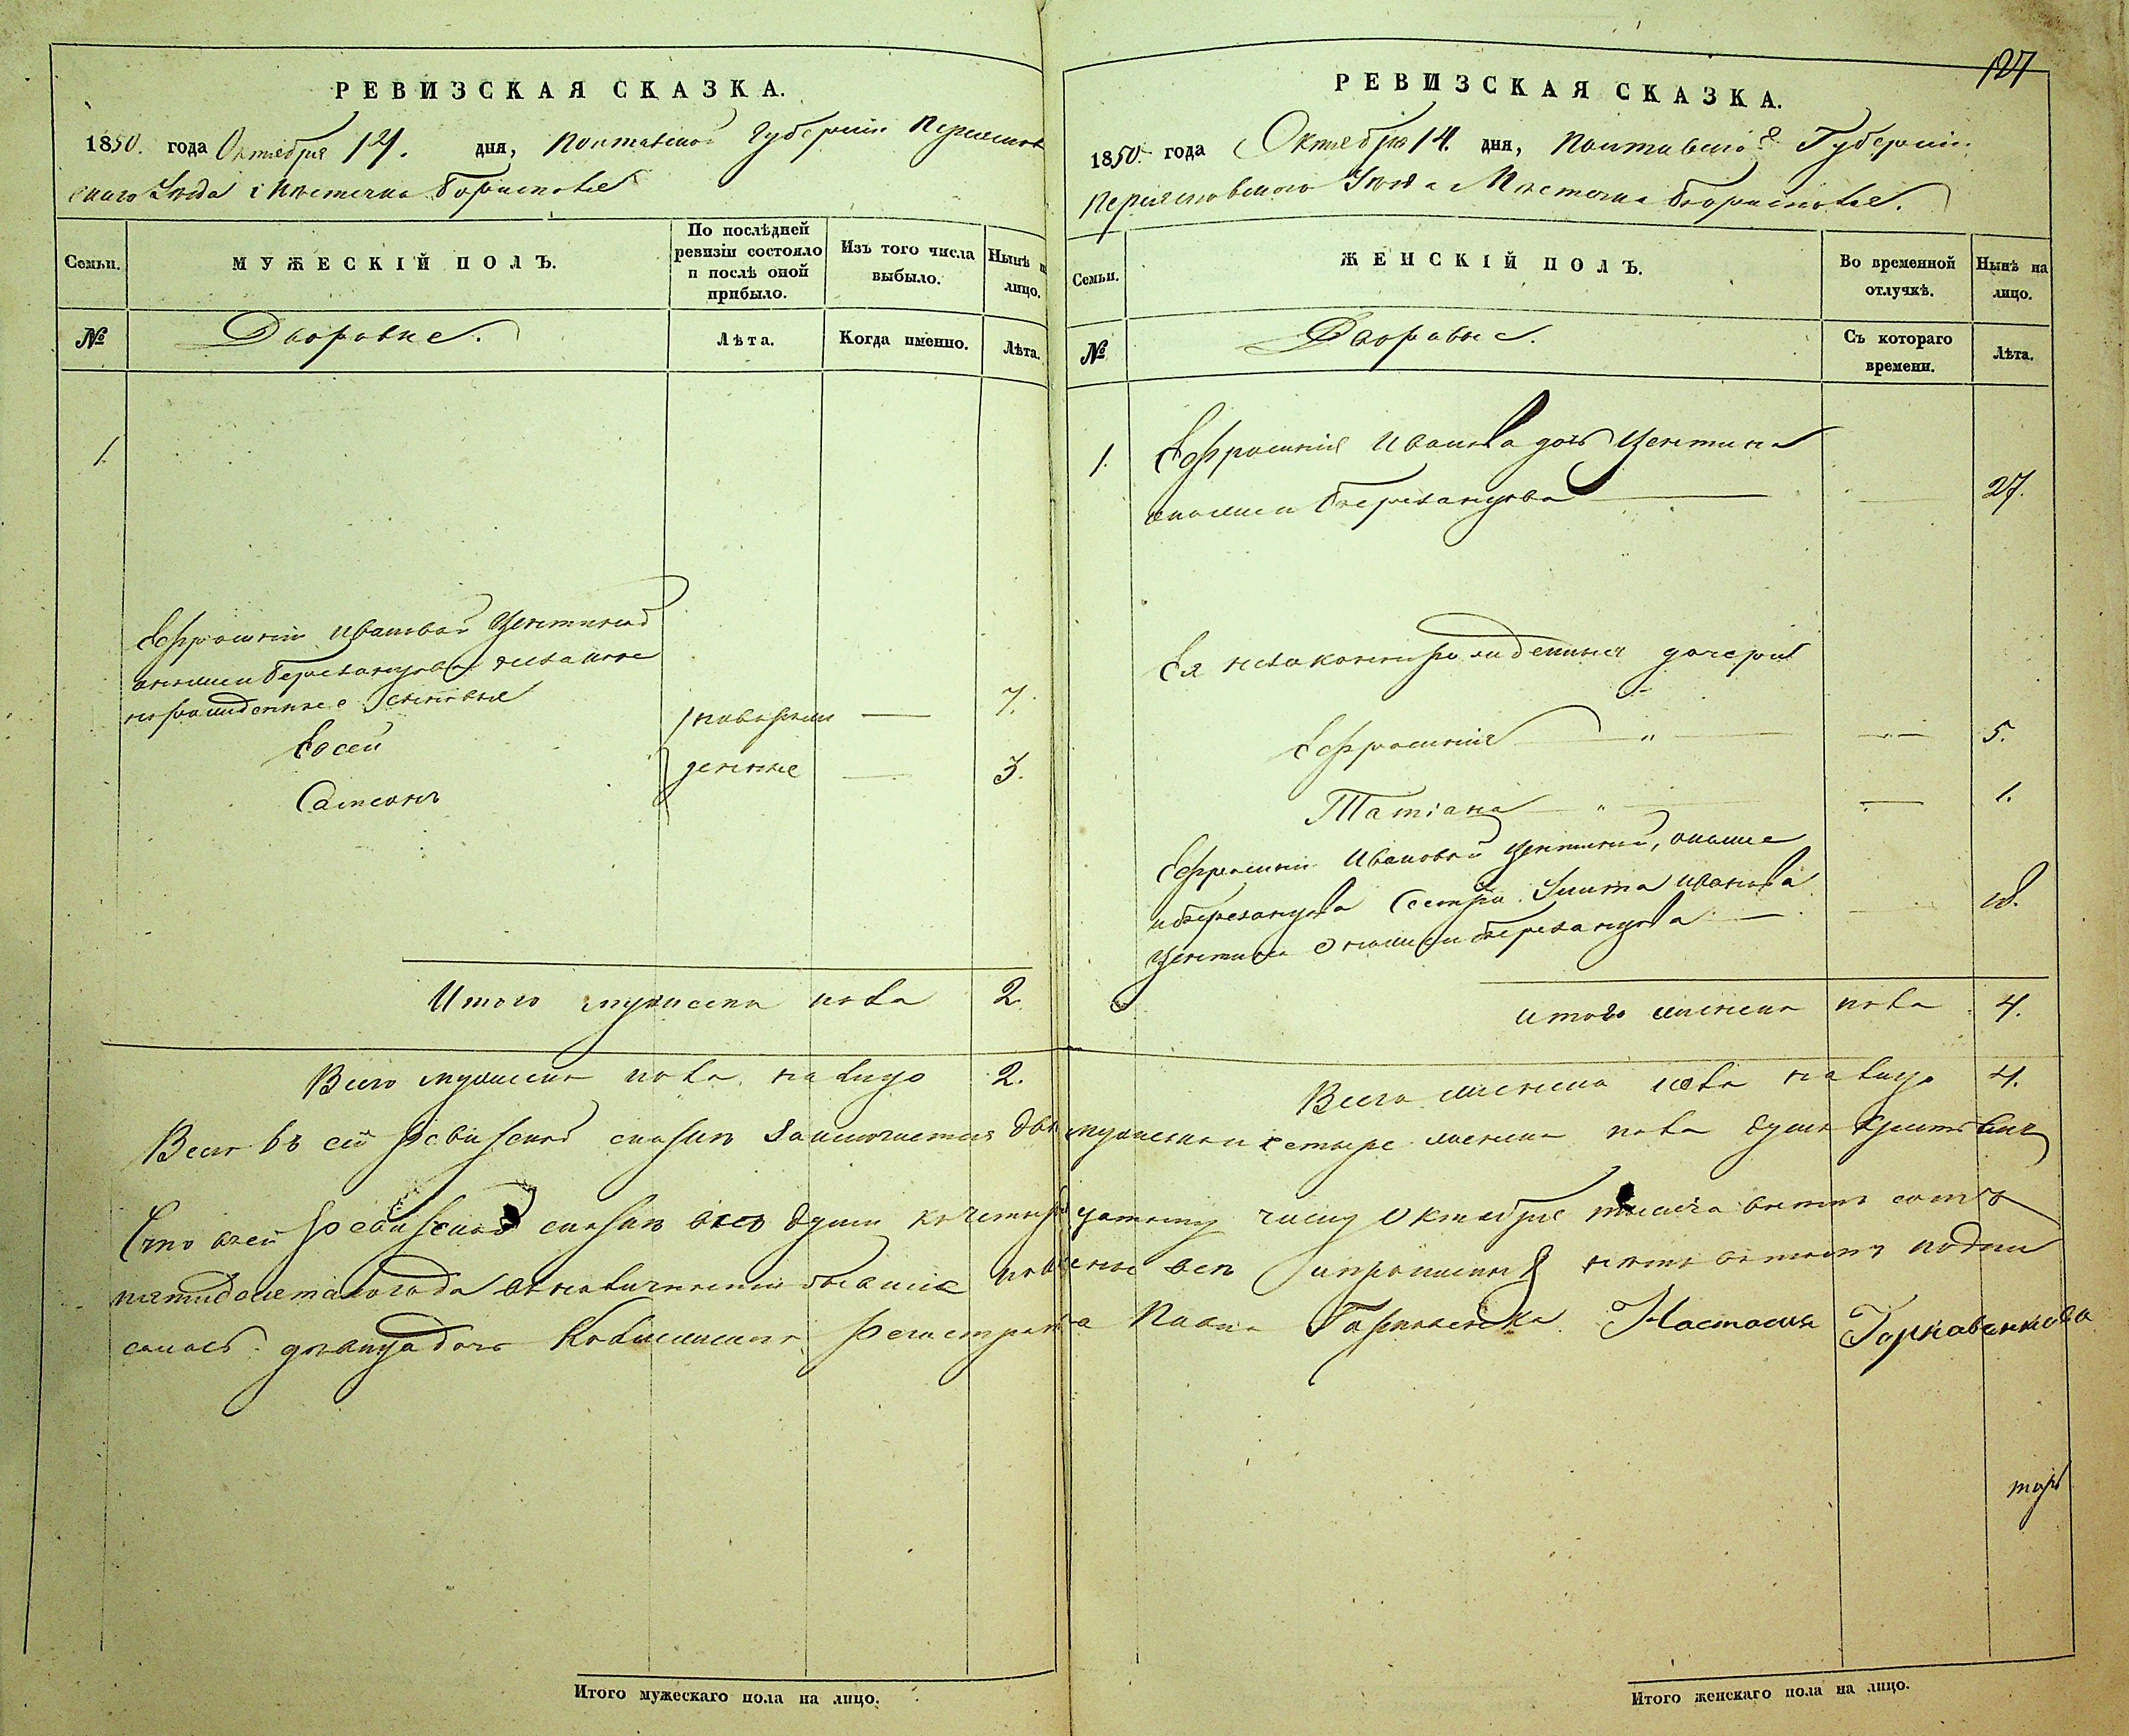 РЕВИЗСКАЯ СКАЗКА.
1850. года Октября 14. дня, Полтавской Губернии Переяслов
скаго Уезда Местечка Борисполя
Семьи.
МУЖЕСКІЙ ПОЛЪ.
По послѣдней
ревизіи состояло
и послѣ оной
прибыло.
Изъ того числа
выбыло.
Нынѣ н
лицо.
№
Дворовые.
Лѣта.
Когда именно.
Лѣта.
1.
Ефросиніи Ивановой
незаконно
рожденные Сыновья
Евсей
новорож 7.
Самсонъ
денные 3.
Итого мужеска пола 2.
Всего мужеска пола на лицо 2.
127
РЕВИЗСКАЯ СКАЗКА.
1850. года Октября 14. дня, Полтавской Губерніи
Переясловского Уезда Местечка Борисполя.
Семьи.
ЖЕНСКІЙ ПОЛЪ.
Во временной
отлучкѣ.
Нынѣ на
лицо.
№
Дворовые.
Съ котораго
времени.
Лѣта.
1. Ефросинія Иванова дочь
27.
Ея незаконнорожденныя дочери
Ефросинія " 5.
Татіана " 1.
Ефросиніи Ивановой
Сестра Улита Иванова
18.
Итого женска пола 4.
Всего женска пола на лицо 4.
Всего въ сей ревизской сказке заключается две мужеска и четыре женска пола душъ
Что в сей ревизской сказке все души к четырнадцатому числу Октября тысяча восемь сотъ
пятидесятого года в наличности показаны все и прописных нет в том подпи
салась девица дочь Коллежского Регистратора Настасия Гарковенкова
Итого мужескаго пола на лицо.
Итого женскаго пола на лицо.